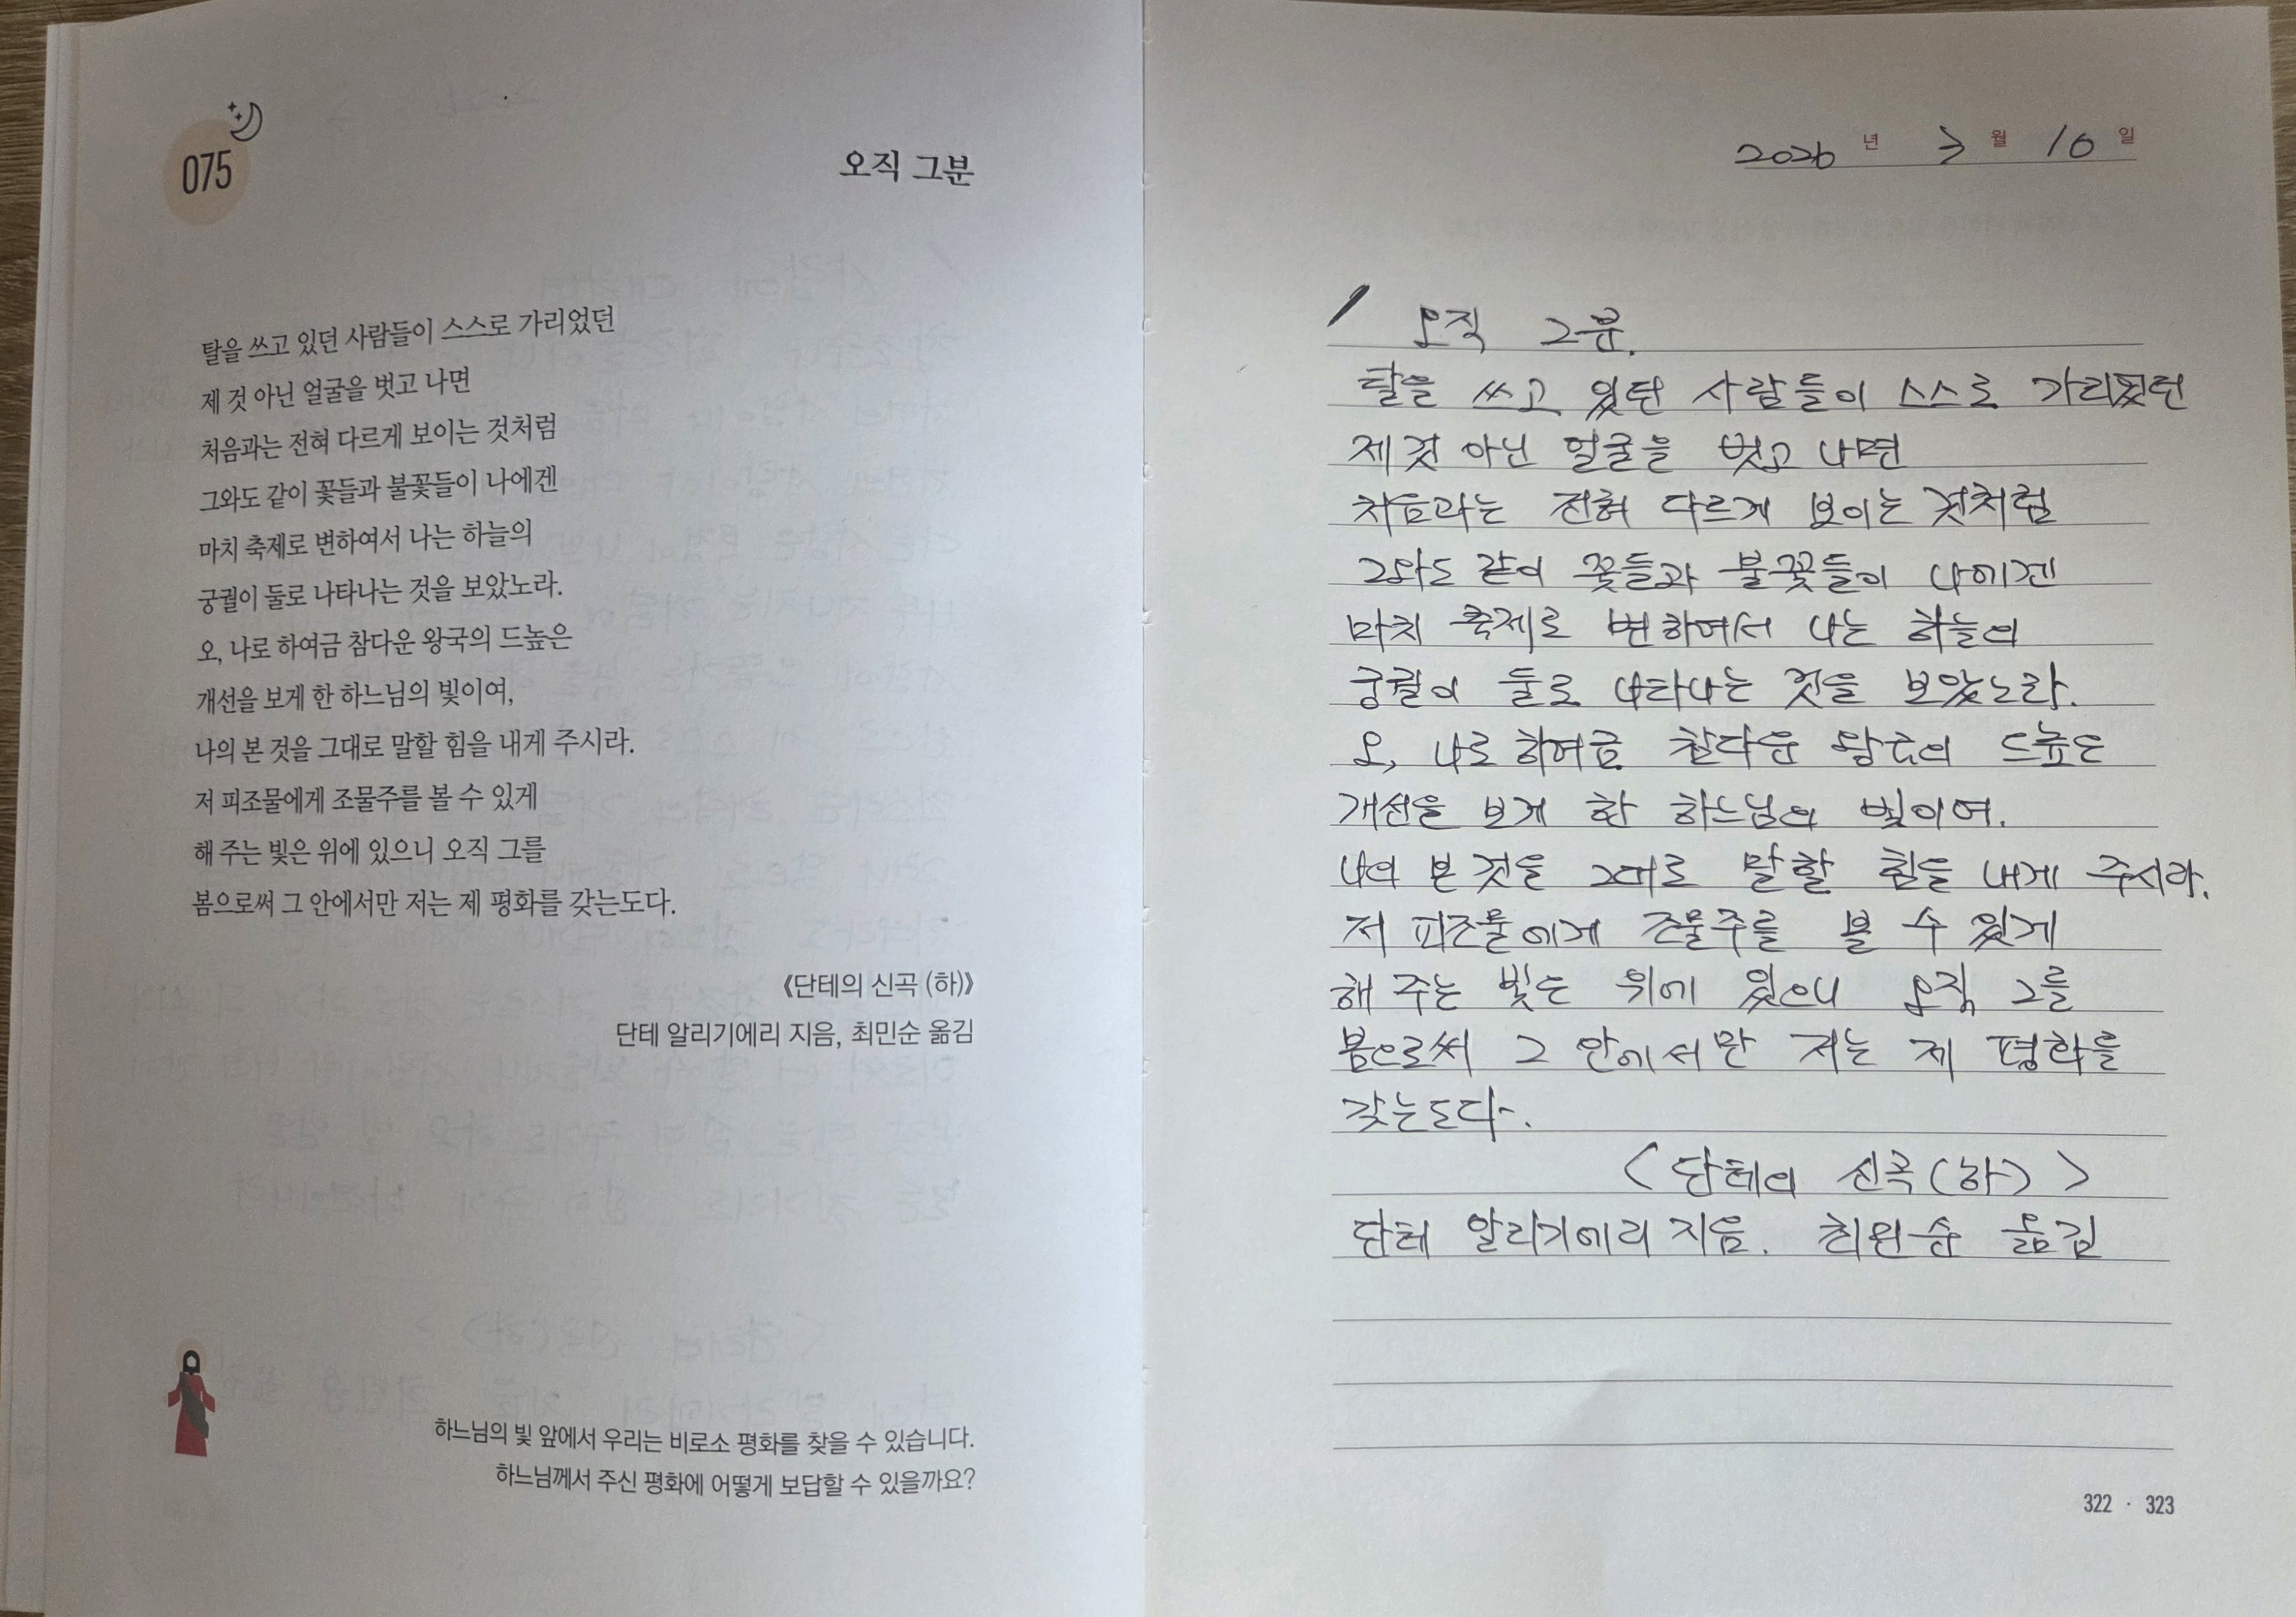 075
오직 그분
탈을 쓰고 있던 사람들이 스스로 가리었던
제 것 아닌 얼굴을 벗고 나면
처음과는 전혀 다르게 보이는 것처럼
그와도 같이 꽃들과 불꽃들이 나에겐
마치 축제로 변하여서 나는 하늘의
궁궐이 둘로 나타나는 것을 보았노라.
오, 나로 하여금 참다운 왕국의 드높은
개선을 보게 한 하느님의 빛이여,
나의 본 것을 그대로 말할 힘을 내게 주시라.
저 피조물에게 조물주를 볼 수 있게
해 주는 빛은 위에 있으니 오직 그를
봄으로써 그 안에서만 저는 제 평화를 갖는도다.
《단테의 신곡 (하)》
단테 알리기에리 지음, 최민순 옮김
하느님의 빛 앞에서 우리는 비로소 평화를 찾을 수 있습니다.
하느님께서 주신 평화에 어떻게 보답할 수 있을까요?
2026 년 3 월 10 일
오직 그분.
탈을 쓰고 있던 사람들이 스스로 가리었던
제 것 아닌 얼굴을 벗고 나면
처음과는 전혀 다르게 보이는 것처럼
그와도 같이 꽃들과 불꽃들이 나에겐
마치 축제로 변하여서 나는 하늘의
궁궐이 둘로 나타나는 것을 보았노라.
오, 나로 하여금 참다운 왕국의 드높은
개선을 보게 한 하느님의 빛이여.
나의 본 것을 그대로 말할 힘을 내게 주시라.
저 피조물에게 조물주를 볼 수 있게
해 주는 빛은 위에 있으니 오직 그를
봄으로써 그 안에서만 저는 제 평화를
갖는도다.
<단테의 신곡(하)>
단테 알리기에리 지음. 최민순 옮김
322 · 323